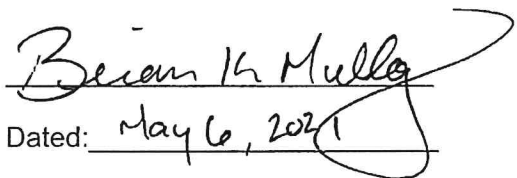 Brian K Mulla
Dated: May 6, 2021